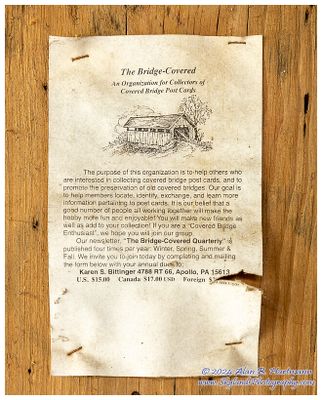 The Bridge-Covered
An Organization for Collectors of
Covered Bridge Post Cards
The purpose of this organization is to help others who
are interested in collecting covered bridge post cards, and to
promote the preservation of old covered bridges. Our goal is
to help members locate, identify, exchange, and learn more
information pertaining to post cards. It is our belief that a
good number of people all working together will make the
hobby more fun and enjoyable! You will make new friends as
well as add to your collection! If you are a "Covered Bridge
Enthusiast", we hope you will join our group.
Our newsletter, "The Bridge-Covered Quarterly" is
published four times per year: Winter, Spring, Summer &
Fall. We invite you to join today by completing and mailing
the form below with your annual dues to:
Karen S. Bittinger 4788 RT 66, Apollo, PA 15613
U.S. $15.00 Canada $17.00 USD Foreign
© 2024 Alan B. Hartmann
www.SkylandPhotography.com